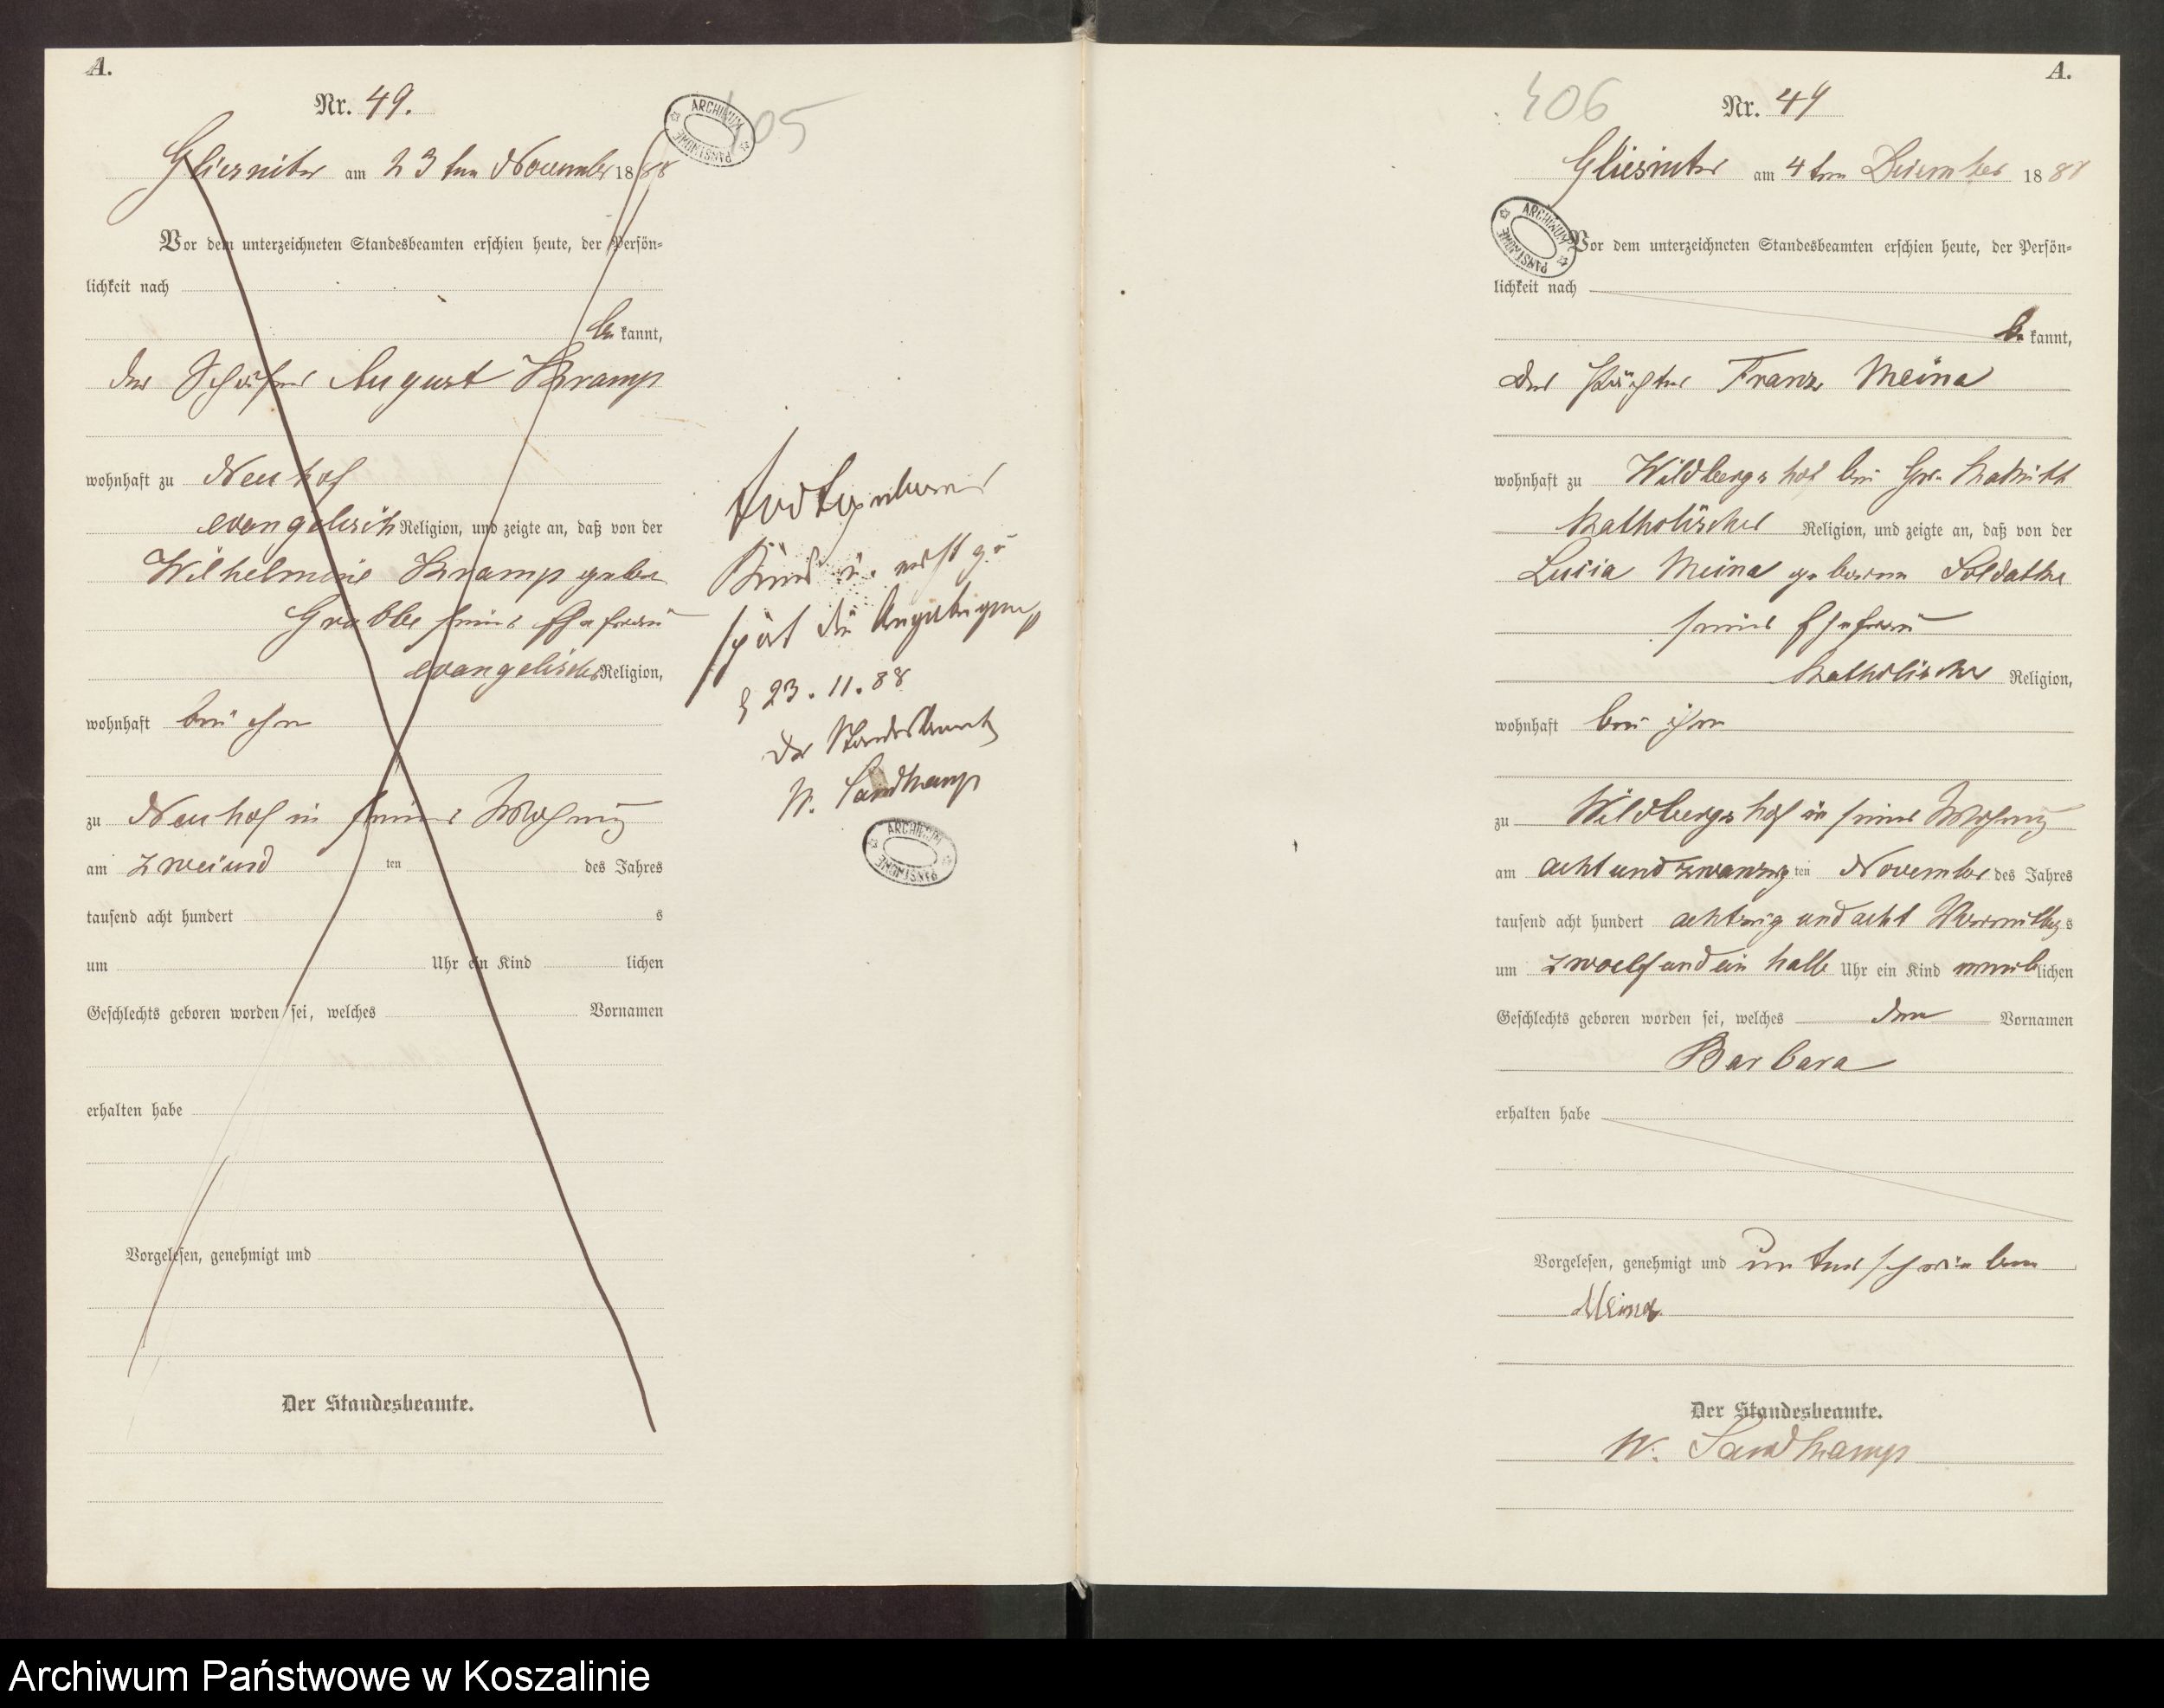 A.
Nr. 49.
Gliesnitz am 23 ten November 1888
Vor dem unterzeichneten Standesbeamten erschien heute, der Persön=
lichkeit nach
be kannt,
der Schäfer August Kramp
wohnhaft zu Neuhof
evangelisch Religion, und zeigte an, daß von der
Wilhelmine Kramp geboren
Grabbe seine Ehefrau
evangelischer Religion,
wohnhaft bei ihm
zu Neuhof in seiner Wohnung
am zweiund ten des Jahres
tausend acht hundert s
um Uhr ein Kind lichen
Geschlechts geboren worden sei, welches Vornamen
erhalten habe
Vorgelesen, genehmigt und
Der Standesbeamte.
405
ARCHIWUM PAŃSTWOWE
Kind u. nicht zu
spät die
23.11.88
Der Standesbeamte
W. Sandkamp
ARCHIWUM PAŃSTWOWE
A.
406
Nr. 49
Gliesnitz am 4 ten Dezember 1888
ARCHIWUM PAŃSTWOWE
Vor dem unterzeichneten Standesbeamten erschien heute, der Persön=
lichkeit nach
be kannt,
der Pächter Franz Meina
wohnhaft zu Wildbergshof bei Gr.
katholischer Religion, und zeigte an, daß von der
Lucia Meina geborene Soldatke
seine Ehefrau
katholischer Religion,
wohnhaft bei ihm
zu Wildbergshof in seiner Wohnung
am acht und zwanzig ten November des Jahres
tausend acht hundert achtzig und acht Vormittags
um zwoelf und ein halb Uhr ein Kind weiblichen
Geschlechts geboren worden sei, welches den Vornamen
Barbara
erhalten habe
Vorgelesen, genehmigt und unterschrieben
Meina
Der Standesbeamte.
W. Sandkamp
Archiwum Państwowe w Koszalinie